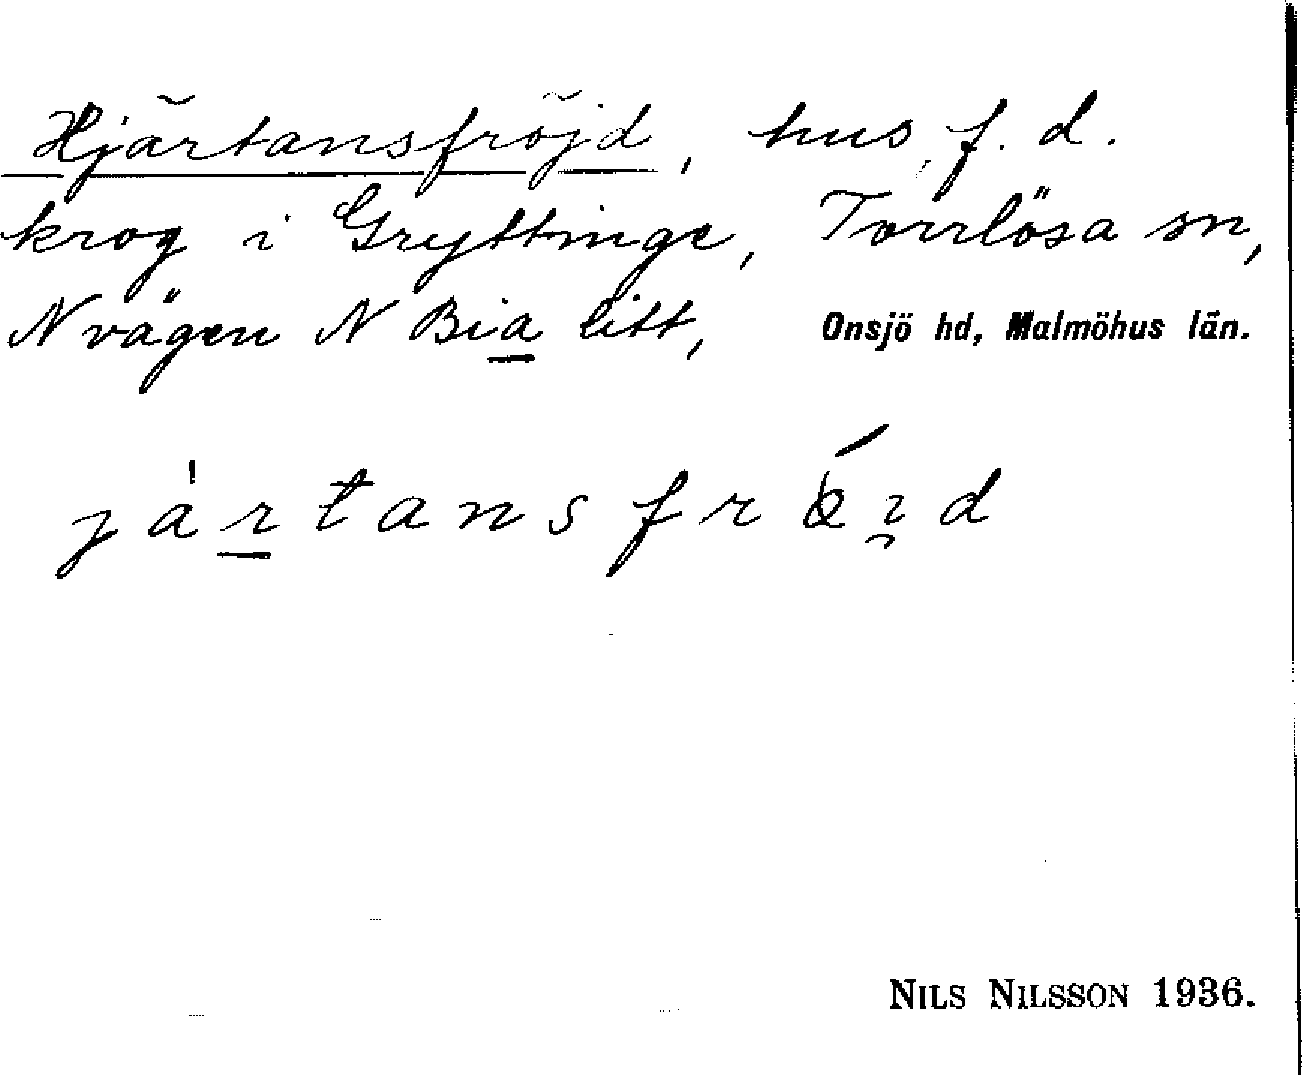 Hjärtansfröjd, hus, f. d.
krog i Gryttinge, Torrlösa sn,
N vägen N Bia litt, Onsjö hd, Malmöhus län.
NILS NILSSON 1936.